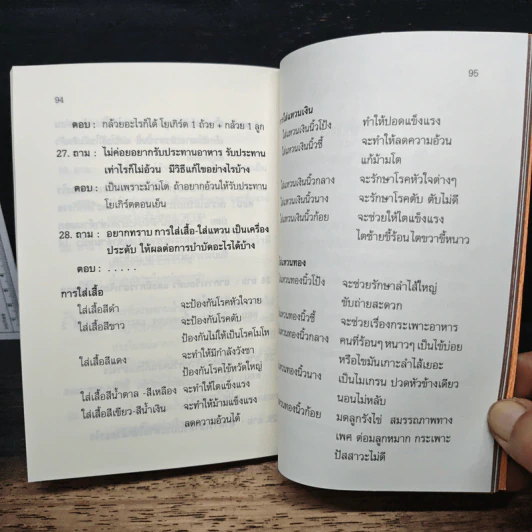 94
ตอบ : กล้วยอะไรก็ได้ โยเกิร์ต 1 ถ้วย + กล้วย 1 ลูก
27. ถาม : ไม่ค่อยอยากรับประทานอาหาร รับประทาน
เท่าไรก็ไม่อ้วน มีวิธีแก้ไขอย่างไรบ้าง
ตอบ : เป็นเพราะม้ามโต ถ้าอยากอ้วนให้รับประทาน
โยเกิร์ตตอนเย็น
28. ถาม : อยากทราบ การใส่เสื้อ-ใส่แหวน เป็นเครื่อง
ประดับ ให้ผลต่อการบำบัดอะไรได้บ้าง
ตอบ : . . . . .
การใส่เสื้อ
ใส่เสื้อสีดำ จะป้องกันโรคหัวใจวาย
ใส่เสื้อสีขาว จะป้องกันโรคตับ
ป้องกันไม่ให้เป็นโรคโมโห
ใส่เสื้อสีแดง จะทำให้มีกำลังวังชา
ป้องกันโรคไข้หวัดใหญ่
ใส่เสื้อสีน้ำตาล -สีเหลือง จะทำให้ไตแข็งแรง
ใส่เสื้อสีเขียว-สีน้ำเงิน จะทำให้ม้ามแข็งแรง
ลดความอ้วนได้
95
ใส่แหวนเงิน
ใส่แหวนเงินนิ้วโป้ง ทำให้ปอดแข็งแรง
ใส่แหวนเงินนิ้วชี้ จะทำให้ลดความอ้วน
แก้ม้ามโต
ใส่แหวนเงินนิ้วกลาง จะรักษาโรคหัวใจต่างๆ
ใส่แหวนเงินนิ้วนาง จะรักษาโรคตับ ตับไม่ดี
ใส่แหวนเงินนิ้วก้อย จะช่วยให้ไตแข็งแรง
ไตซ้ายขี้ร้อน ไตขวาขี้หนาว
แหวนทอง
แหวนทองนิ้วโป้ง จะช่วยรักษาลำไส้ใหญ่
ขับถ่ายสะดวก
แหวนทองนิ้วชี้ จะช่วยเรื่องกระเพาะอาหาร
แหวนทองนิ้วกลาง คนที่ร้อนๆ หนาวๆ เป็นไข้บ่อย
หรือไขมันเกาะลำไส้เยอะ
แหวนทองนิ้วนาง เป็นไมเกรน ปวดหัวข้างเดียว
นอนไม่หลับ
แหวนทองนิ้วก้อย มดลูกรังไข่ สมรรถภาพทาง
เพศ ต่อมลูกหมาก กระเพาะ
ปัสสาวะไม่ดี